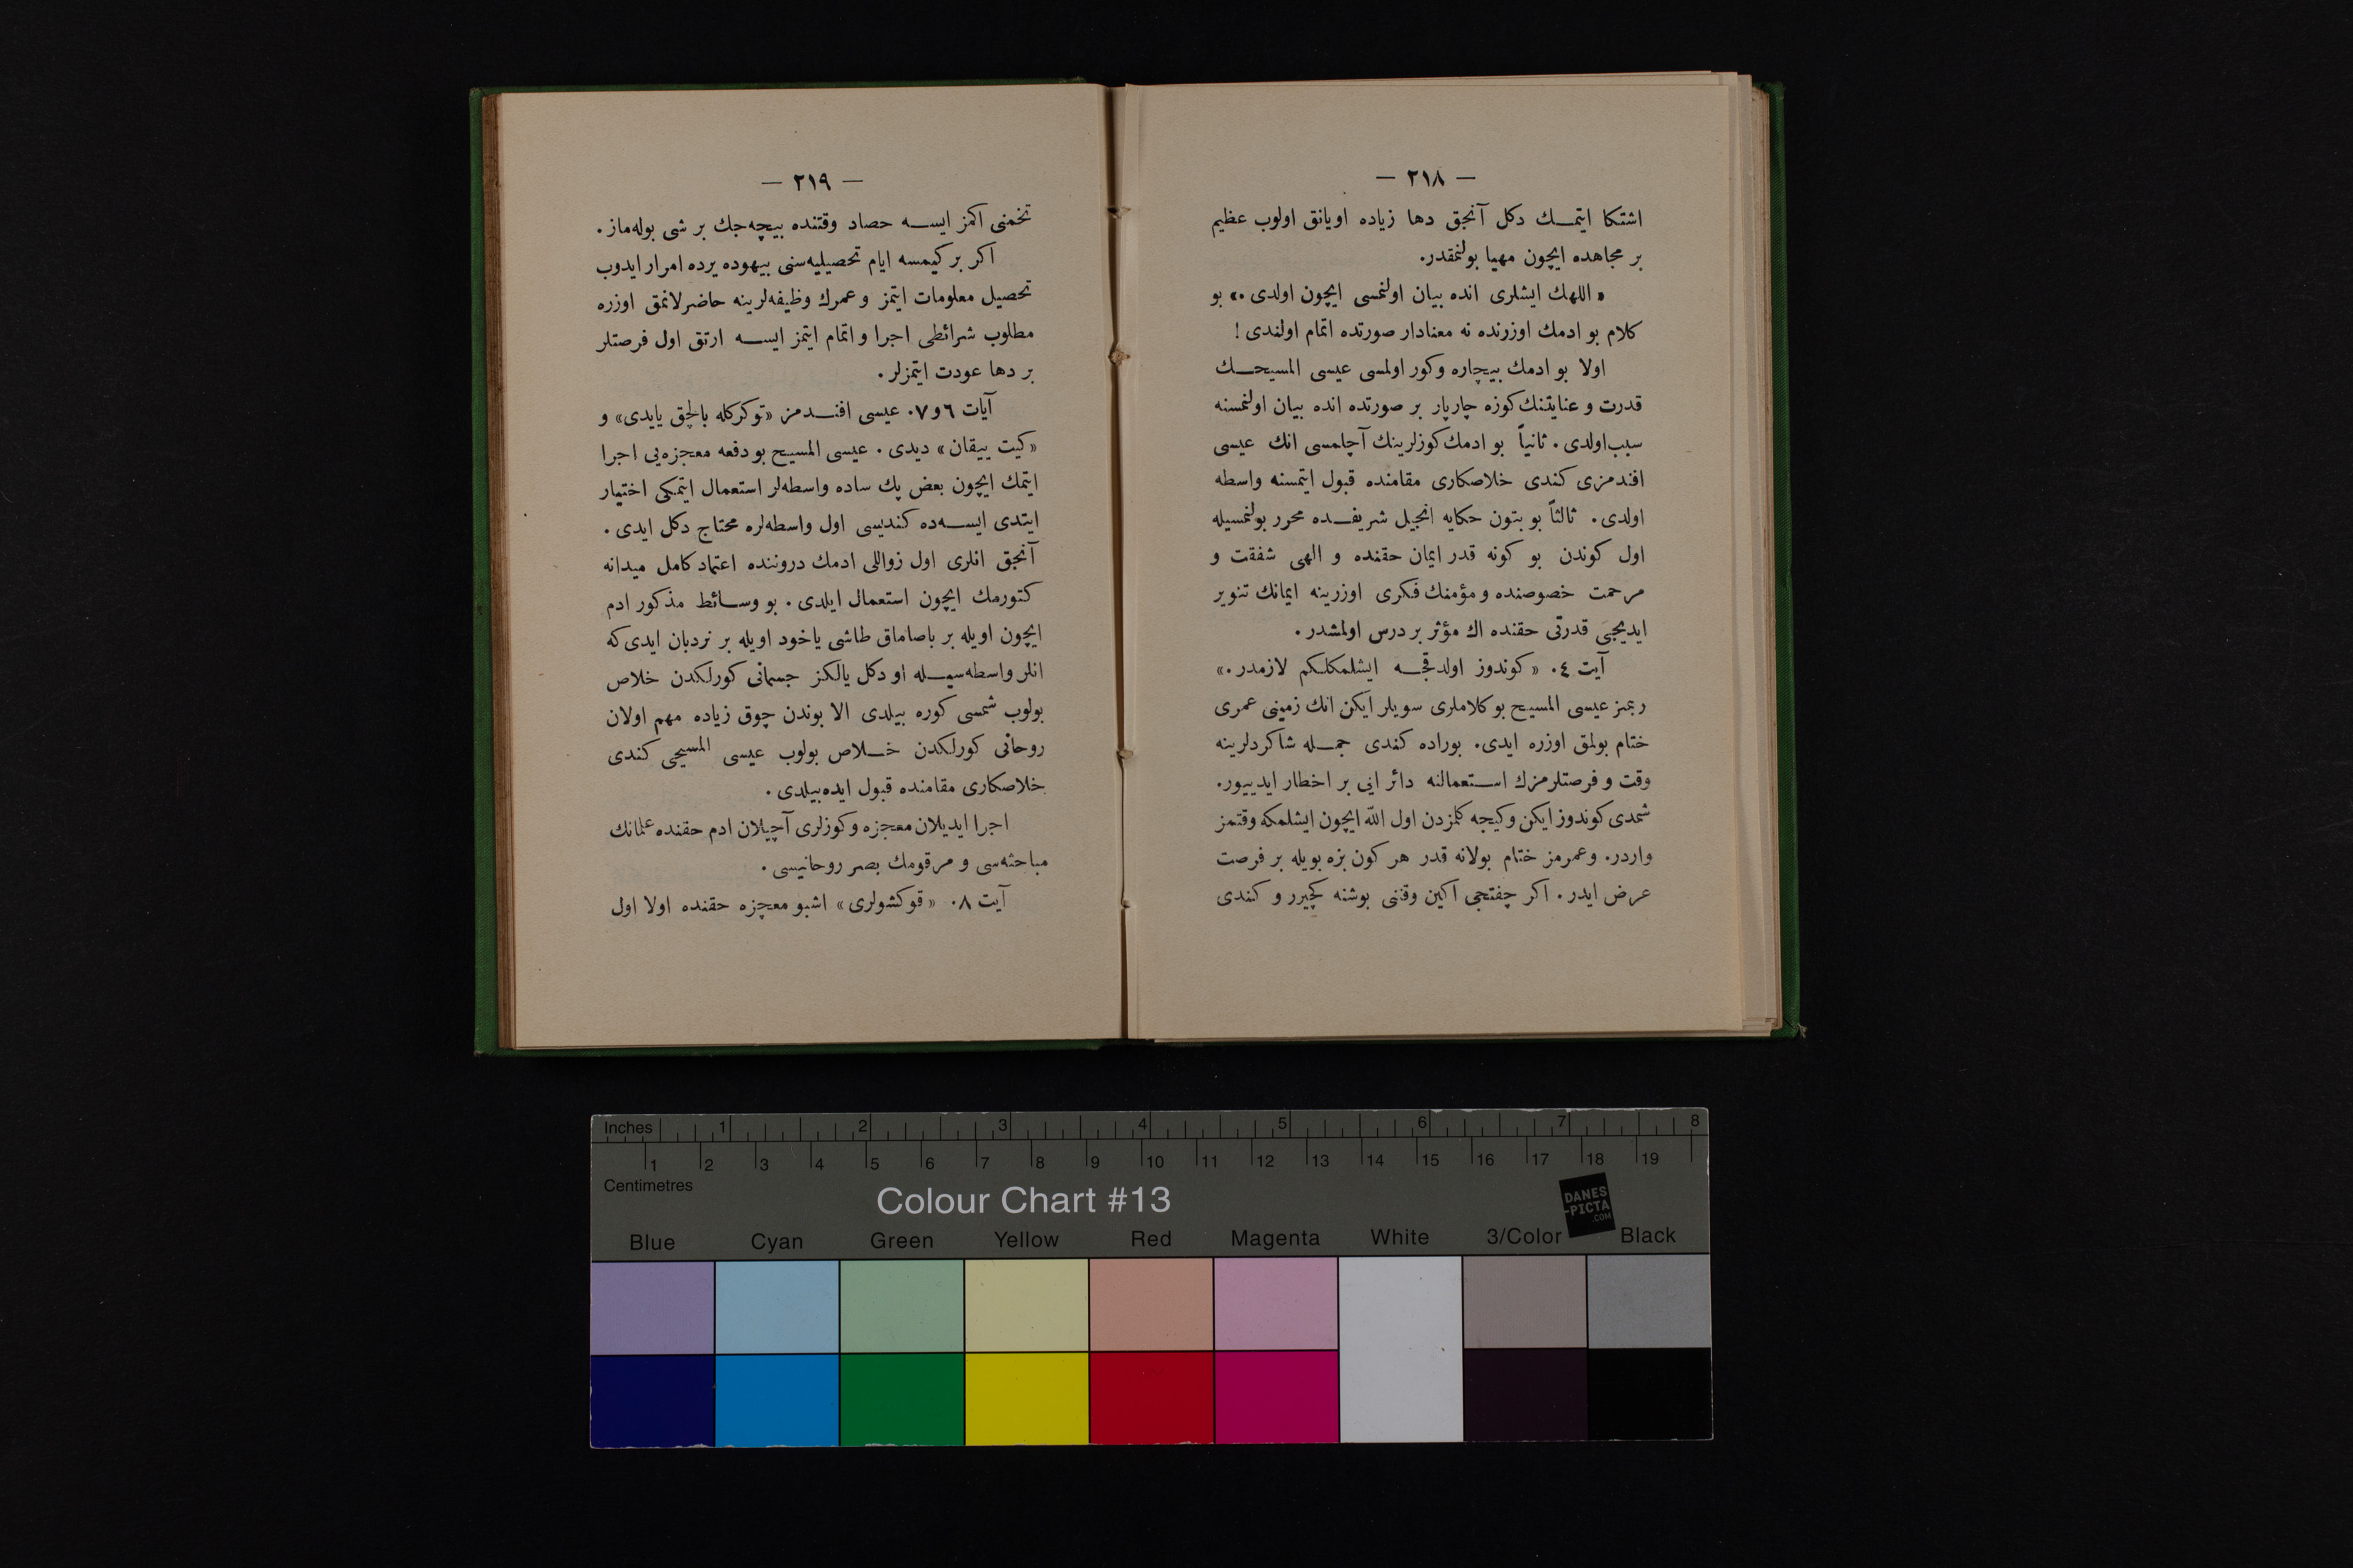 — ٢١٨ —
اشتكا ايتمك دكل آنجق دها زياده اويانق اولوب عظيم
بر مجاهده ايچون مهيا بولنمقدر.
« اللهك ايشلری انده بيان اولنمسی ايچون اولدی .» بو
كلام بو ادمك اوزرنده نه معنادار صورتده اتمام اولندی !
اولا بو ادمك بيچاره وكور اولمسی عيسی المسيحك
قدرت و عنايتنك كوزه چارپار بر صورتده انده بيان اولنمسنه
سبب اولدی . ثانياً بو ادمك كوزلرينك آچلمسی انك عيسی
افندمزی كندی خلاصكاری مقامنده قبول ايتمسنه واسطه
اولدی . ثالثاً بو بتون حكايه انجيل شريفده محرر بولنمسيله
اول كوندن بو كونه قدر ايمان حقنده و الهی شفقت و
مرحمت خصوصنده و مؤمنك فكری اوزرينه ايمانك تنوير
ايديجی قدرتی حقنده اك مؤثر بر درس اولمشدر .
آيت ٤. « كوندوز اولدقجه ايشلمكلكم لازمدر .»
ربمز عيسی المسيح بو كلاملری سويلر ايكن انك زمينی عمری
ختام بولمق اوزره ايدی. بوراده كندی جمله شاكردلرينه
وقت و فرصتلرمزك استعمالنه دائر ايی بر اخطار ايدييور.
شمدی كوندوز ايكن وكيجه كلمزدن اول اللّه ايچون ايشلمكه وقتمز
واردر. وعمرمز ختام بولانه قدر هر كون بزه بويله بر فرصت
عرض ايدر . اكر چفتجی اكين وقتنی بوشنه كچيرر و كندی
— ٢١٩ —
تخمنی اكمز ايسه حصاد وقتنده بيچه جك بر شی بوله ماز .
اكر بر كيمسه ايام تحصيليه سنی بيهوده يرده امرار ايدوب
تحصيل معلومات ايتمز و عمرك وظيفه لرينه حاضرلانمق اوزره
مطلوب شرائطی اجرا و اتمام ايتمز ايسه ارتق اول فرصتلر
بر دها عودت ايتمزلر .
آيات ٦و٧. عيسی افندمز «توكركله بالچق يايدی» و
«كيت ييقان» ديدی . عيسی المسيح بو دفعه معجزه يی اجرا
ايتمك ايچون بعض پك ساده واسطه لر استعمال ايتمكی اختيار
ايتدی ايسه ده كنديسی اول واسطه لره محتاج دكل ايدی .
آنجق انلری اول زواللی ادمك دروننده اعتماد كامل ميدانه
كتورمك ايچون استعمال ايلدی . بو وسائط مذكور ادم
ايچون اويله بر باصاماق طاشی ياخود اويله بر نردبان ايدی كه
انلر واسطه سيله او دكل يالكز جسمانی كورلكدن خلاص
بولوب شمسی كوره بيلدی الا بوندن چوق زياده مهم اولان
روحانی كورلكدن خلاص بولوب عيسی المسيحی كندی
خلاصكاری مقامنده قبول ايده بيلدی .
اجرا ايديلان معجزه و كوزلری آچيلان ادم حقنده علمانك
مباحثه سی و مرقومك بصر روحانيسی .
آيت ٨. «قوكشولری» اشبو معجزه حقنده اولا اول
Inches 1 2 3 4 5 6 7 8
1 2 3 4 5 6 7 8 9 10 11 12 13 14 15 16 17 18 19
Centimetres
Colour Chart #13
DANES
-PICTA
.COM
Blue Cyan Green Yellow Red Magenta White 3/Color Black